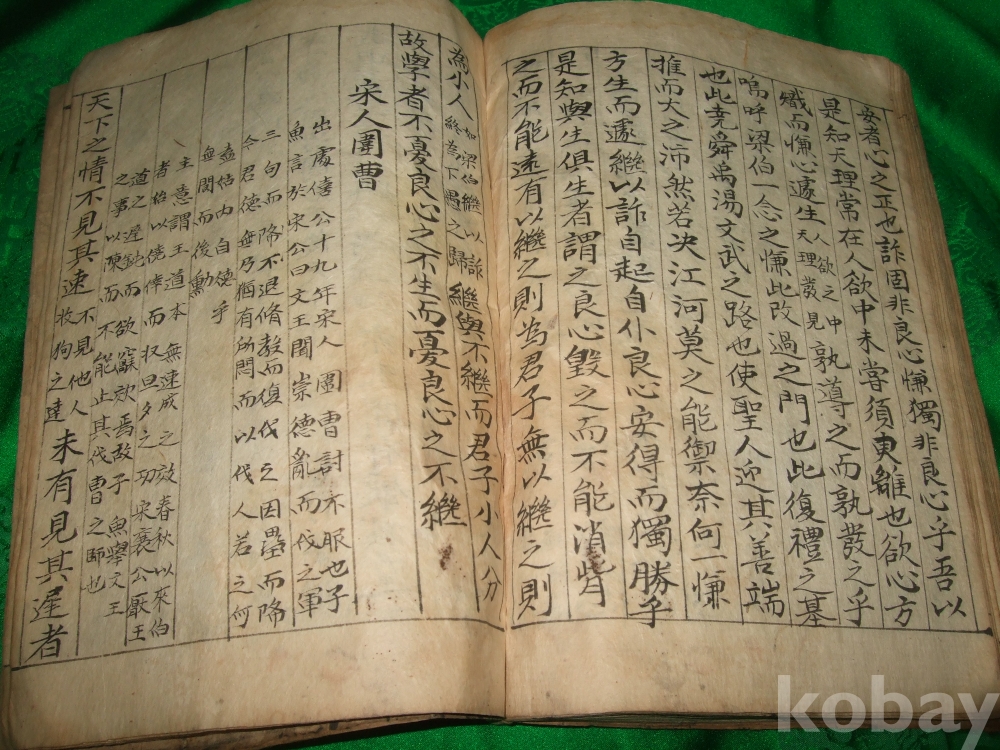 安者心之正也詐固非良心慊獨非良心乎吾以
是知天理常在人欲中未嘗須臾離也欲心方
熾而慊心遽生天理發見人欲之中孰導之而孰發之乎
嗚呼梁伯一念之慊此改過之門也此復禮之基
也此堯舜禹湯文武之路也使聖人迎其善端
推而大之沛然若决江河莫之能禦奈何一慊
方生而遽繼以詐自起自仆良心安得而獨勝乎
是知與生俱生者謂之良心毀之而不能消背
之而不能遠有以繼之則為君子無以繼之則
為小人如梁伯繼以詐終為下愚之歸繼與不繼而君子小人分
故學者不憂良心之不生而憂良心之不繼
宋人圍曹
出處僖公十九年宋人圍曹討不服也子
魚言於宋公曰文王聞崇德亂而伐之軍
三旬而降不退脩教而復伐之因壘而降
今君德無乃猶有所闕而以伐人若之何
盍姑內自德乎
無闕而後動
主意謂王道本無速成之效春秋以來伯
者怡以僥倖而収旦夕之功宋襄公厭王
道之遲鈍而欲
之事以陳而不能止其伐曹之師也
天下之情不見其速不見他人收狗之達未有見其遲者
kobay